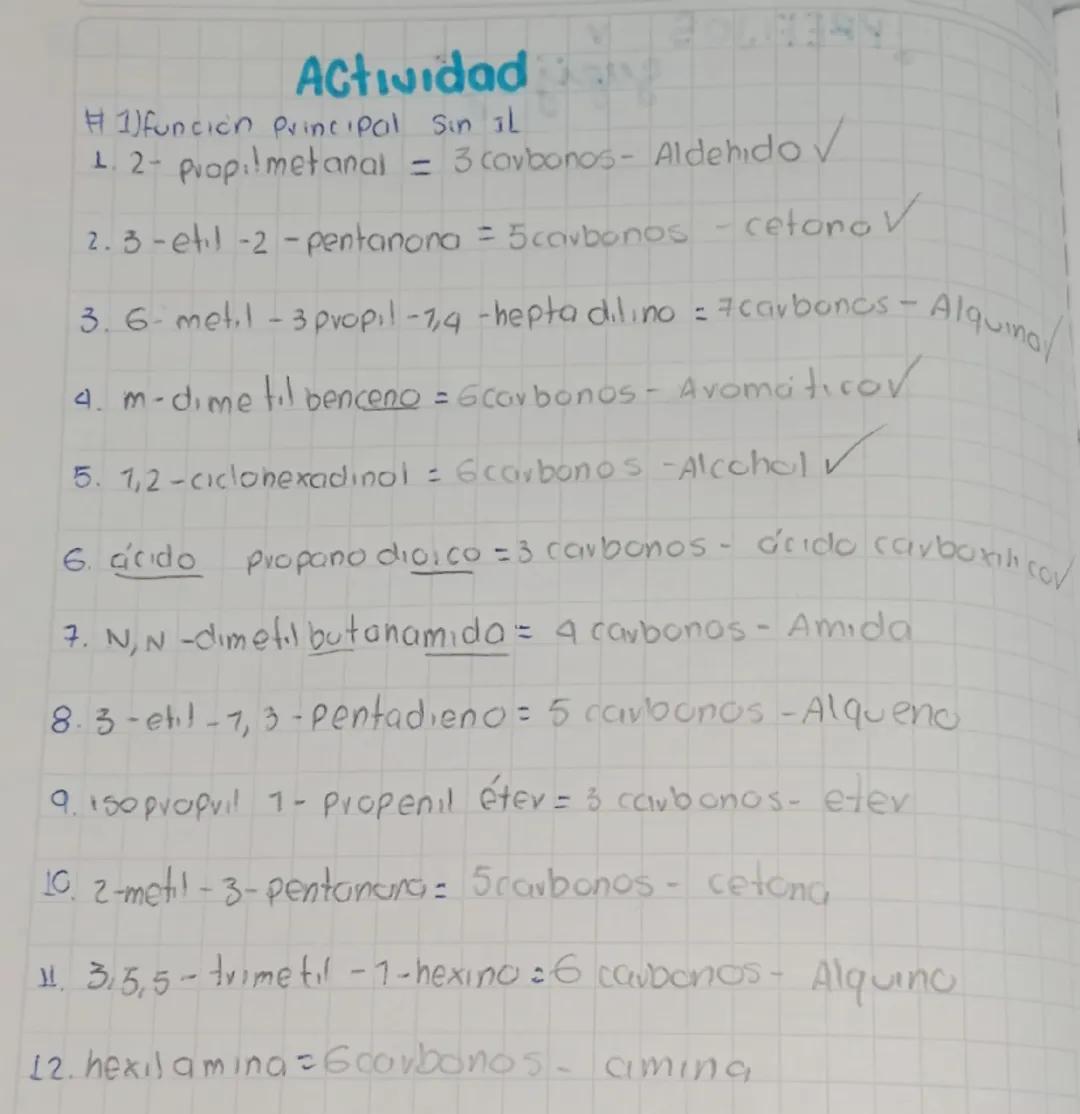 Actividad
# 1) función Principal sin il
1. 2- propilmetanal = 3 carbonos - Aldehido ✓
2. 3-etil-2-pentanona = 5 carbonos - cetona ✓
3. 6-metil-3propil-1,4-heptadiino = 7 carbonos - Alquino ✓
4. m-dimetilbenceno = 6 carbonos - Aromático ✓
5. 1,2-ciclohexadinol = 6 carbonos - Alcohol ✓
6. ácido propanodioico = 3 carbonos - ácido carboxilico ✓
7. N,N-dimetilbutanamida = 4 carbonos - Amida
8. 3-etil-1,3-pentadieno = 5 carbonos - Alqueno
9. isopropril 1- propenil éter = 3 carbonos - eter
10. 2-metil-3-pentanona = 5 carbonos - cetona
11. 3,5,5-trimetil-1-hexino = 6 carbonos - Alquino
12. hexilamina = 6 carbonos - amina